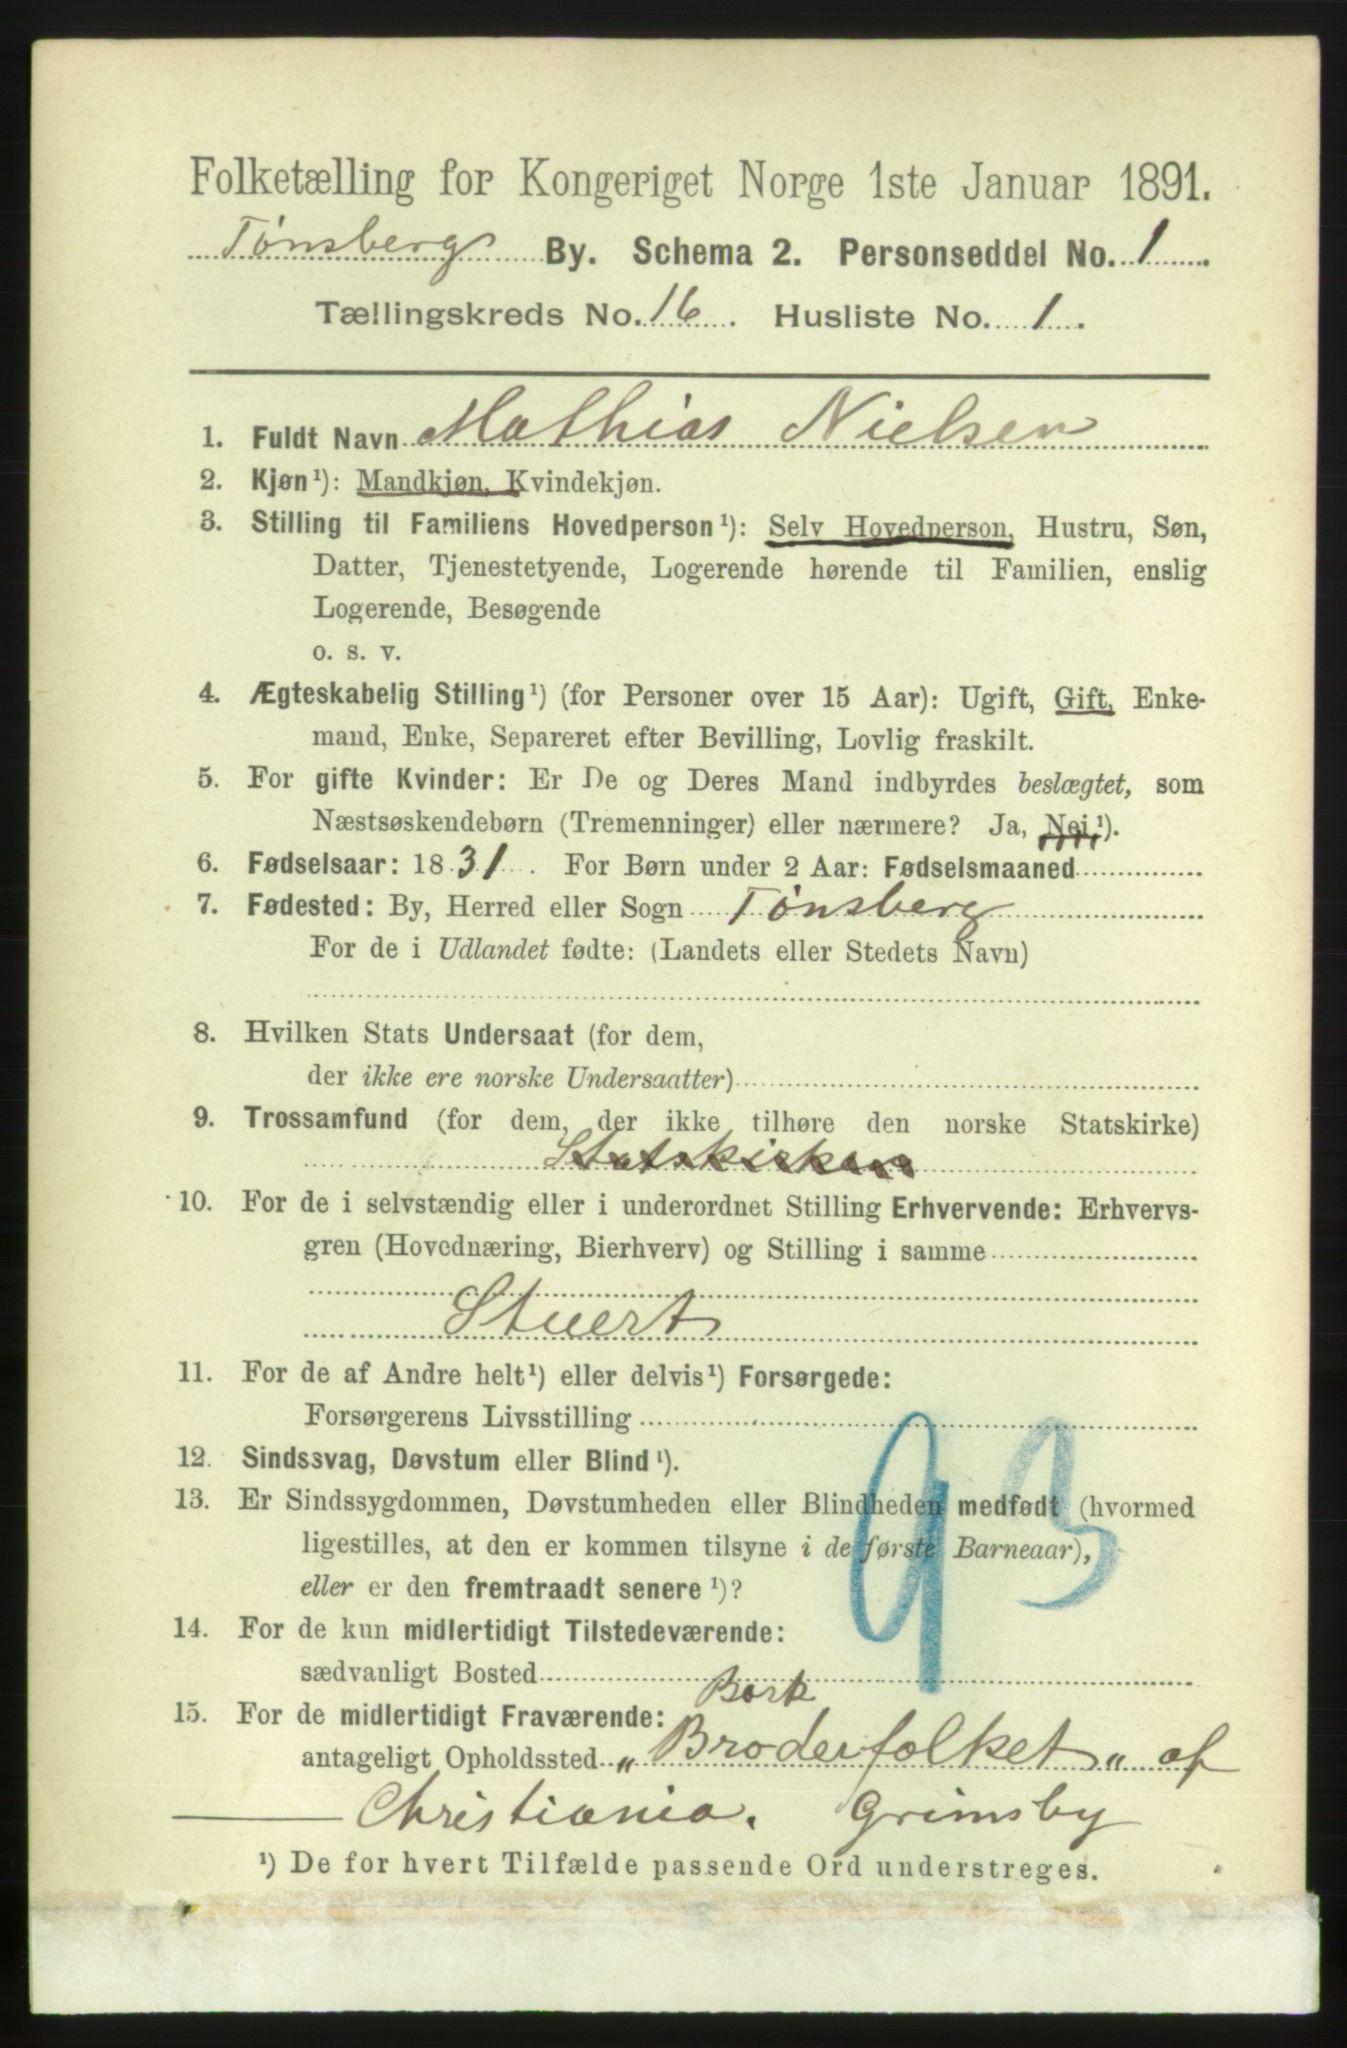 Folketælling for Kongeriget Norge 1ste Januar 1891.
Tønsberg By. Schema 2. Personseddel No. 1
Tællingskreds No. 16. Husliste No. 1.
1. Fuldt Navn Mathias Nielsen
2. Kjøn¹): Mandkjøn, Kvindekjøn.
3. Stilling til Familiens Hovedperson¹): Selv Hovedperson, Hustru, Søn,
Datter, Tjenestetyende, Logerende hørende til Familien, enslig
Logerende, Besøgende
o. s. v.
4. Ægteskabelig Stilling¹) (for Personer over 15 Aar): Ugift, Gift, Enke-
mand, Enke, Separeret efter Bevilling, Lovlig fraskilt.
5. For gifte Kvinder: Er De og Deres Mand indbyrdes beslægtet, som
Næstsøskendebørn (Tremenninger) eller nærmere? Ja, Nei¹).
6. Fødselsaar: 1831. For Børn under 2 Aar: Fødselsmaaned
7. Fødested: By, Herred eller Sogn Tønsberg
For de i Udlandet fødte: (Landets eller Stedets Navn)
8. Hvilken Stats Undersaat (for dem,
der ikke ere norske Undersaatter)
9. Trossamfund (for dem, der ikke tilhøre den norske Statskirke)
Statskirken
10. For de i selvstændig eller i underordnet Stilling Erhvervende: Erhvervs-
gren (Hovednæring, Bierhverv) og Stilling i samme
Stuert
11. For de af Andre helt¹) eller delvis¹) Forsørgede:
Forsørgerens Livsstilling
12. Sindssvag, Døvstum eller Blind¹).
13. Er Sindssygdommen, Døvstumheden eller Blindheden medfødt (hvormed
ligestilles, at den er kommen tilsyne i de første Barneaar),
eller er den fremtraadt senere¹)?
93
14. For de kun midlertidigt Tilstedeværende:
sædvanligt Bosted
Bark
15. For de midlertidigt Fraværende:
antageligt Opholdssted „Broderfolket„ af
Christiania. Grimsby
¹) De for hvert Tilfælde passende Ord understreges.